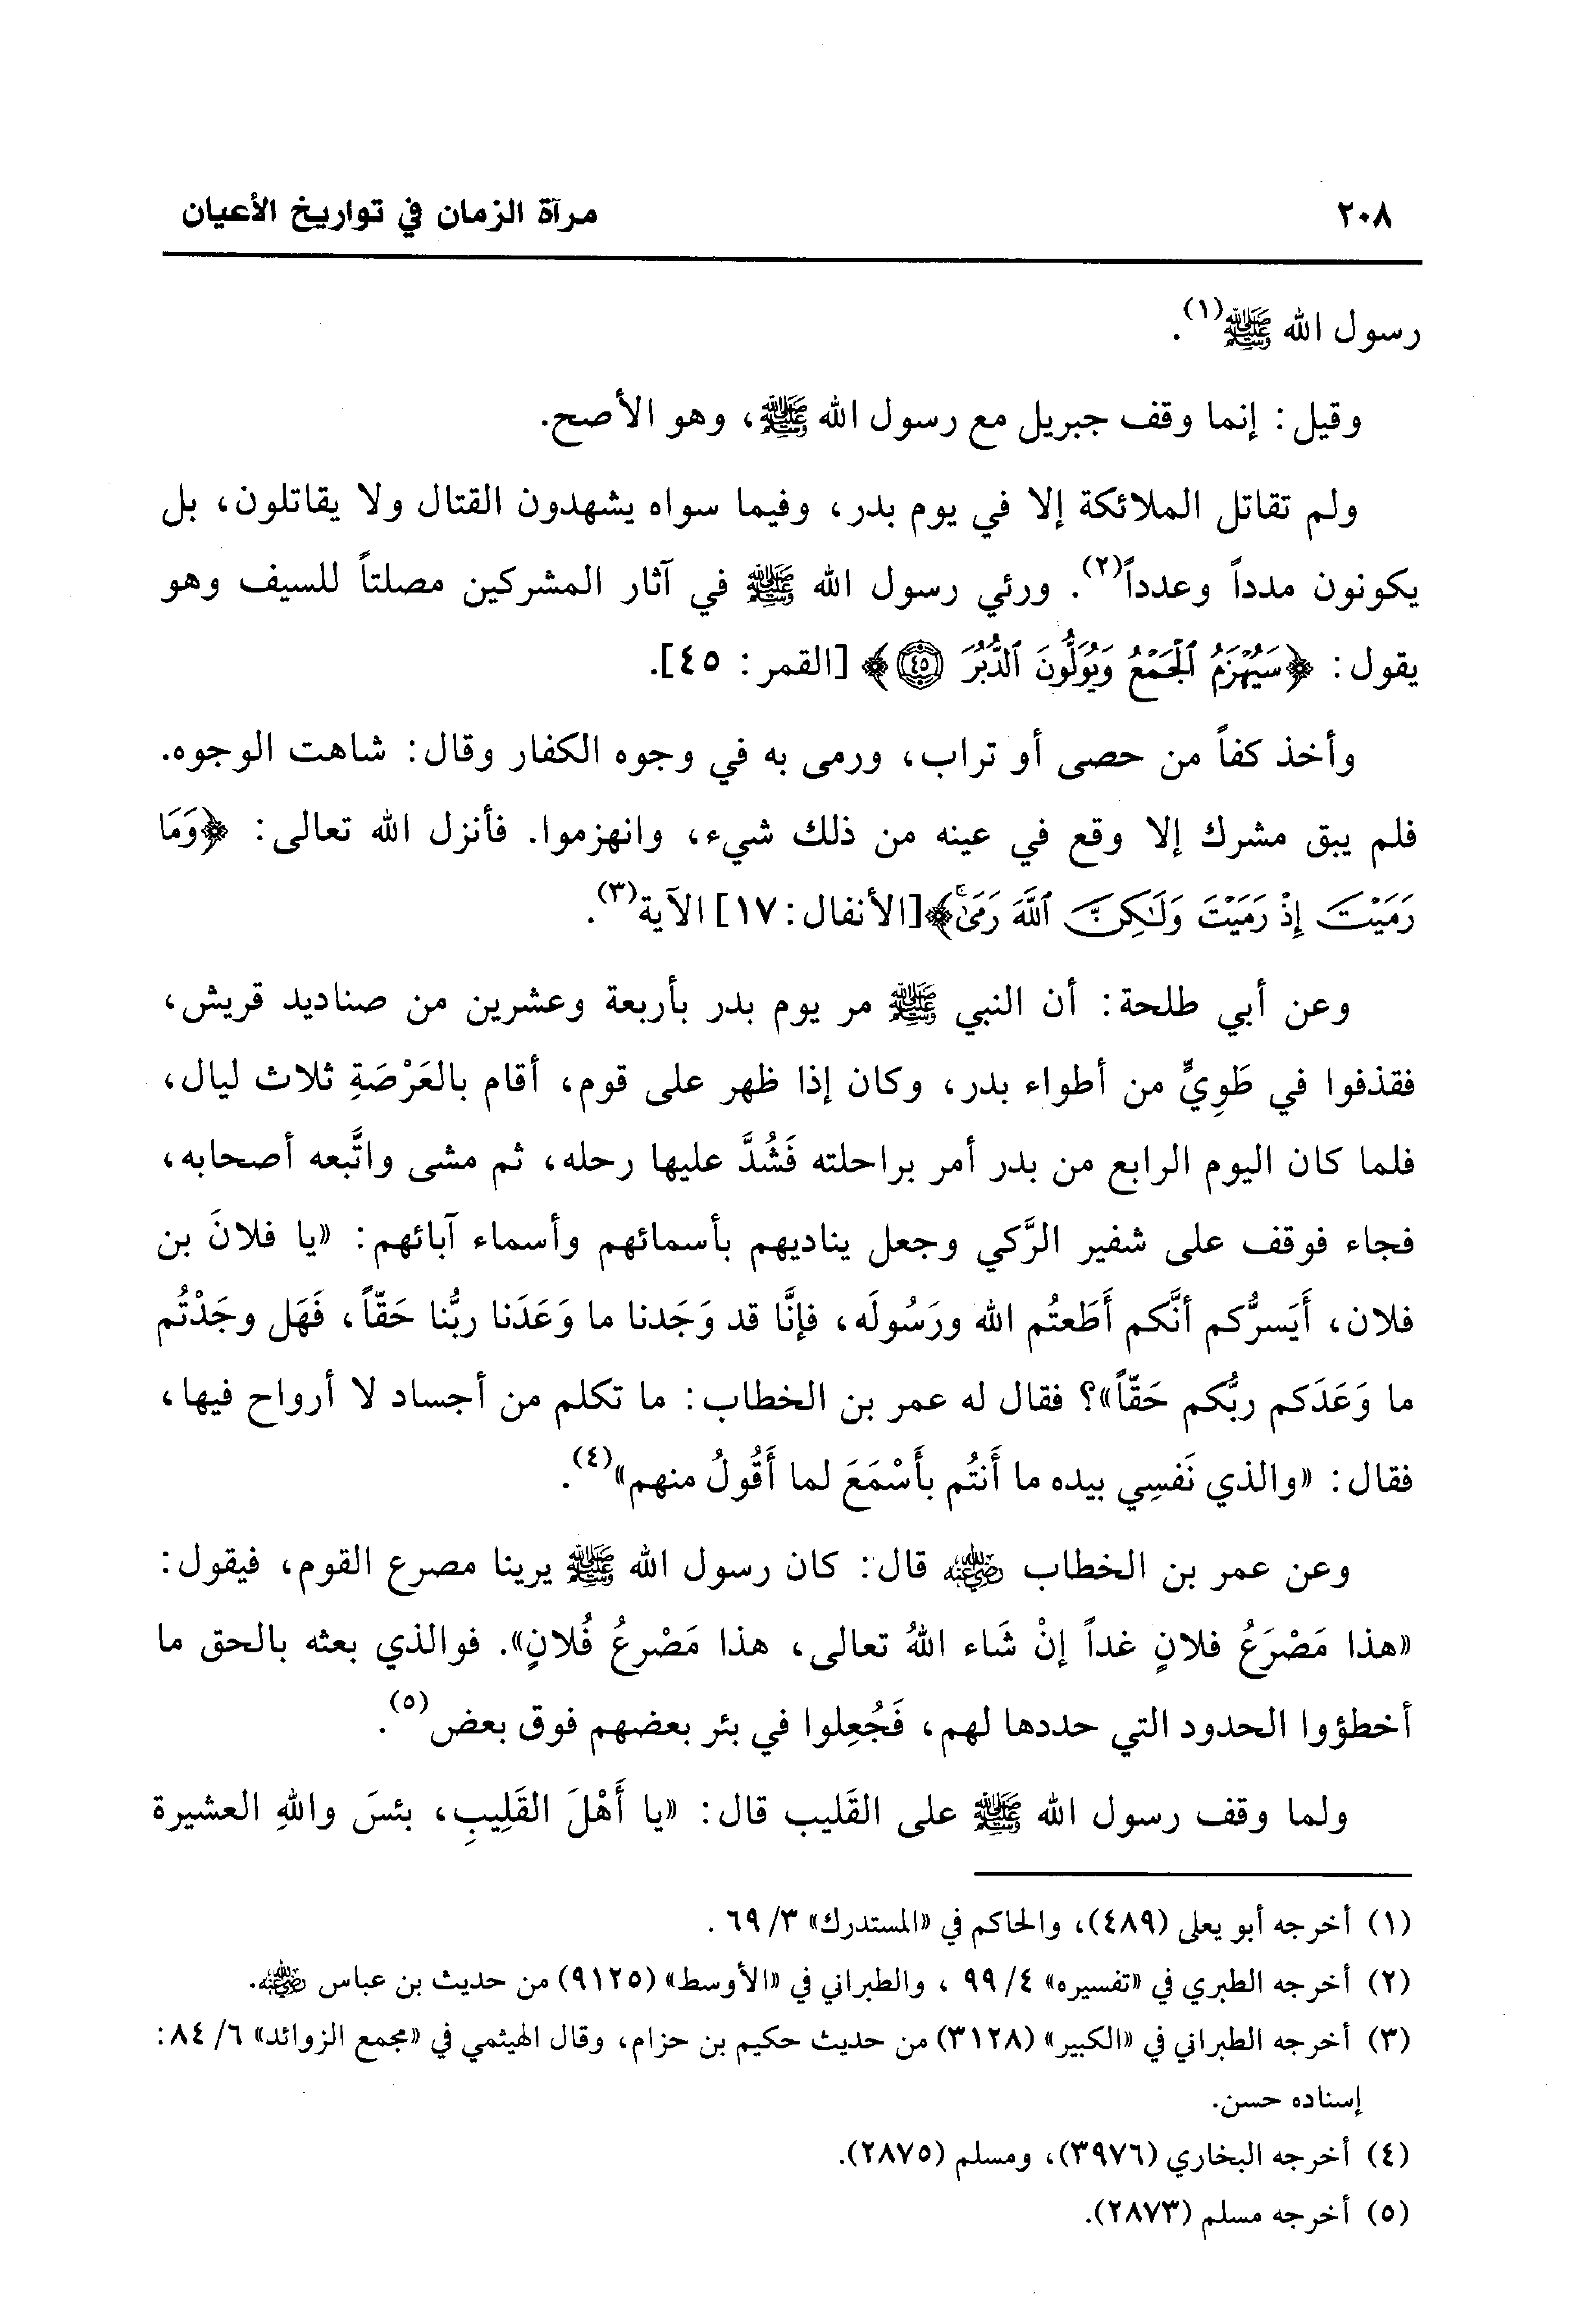 ٢٠٨ مرآة الزمان في تواريخ الأعيان
رسول الله ﷺ(١).
وقيل: إنما وقف جبريل مع رسول الله ﷺ، وهو الأصح.
ولم تقاتل الملائكة إلا في يوم بدر، وفيما سواه يشهدون القتال ولا يقاتلون، بل
يكونون مدداً وعدداً(٢). ورئي رسول الله ﷺ في آثار المشركين مصلتاً للسيف وهو
يقول: ﴿سَيُهْزَمُ ٱلْجَمْعُ وَيُوَلُّونَ ٱلدُّبُرَ ٤٥﴾ [القمر: ٤٥].
وأخذ كفاً من حصى أو تراب، ورمى به في وجوه الكفار وقال: شاهت الوجوه.
فلم يبق مشرك إلا وقع في عينه من ذلك شيء، وانهزموا. فأنزل الله تعالى: ﴿وَمَا
رَمَيْتَ إِذْ رَمَيْتَ وَلَٰكِنَّ ٱللَّهَ رَمَىٰۚ﴾[الأنفال: ١٧] الآية(٣).
وعن أبي طلحة: أن النبي ﷺ مر يوم بدر بأربعة وعشرين من صناديد قريش،
فقذفوا في طَوِيٍّ من أطواء بدر، وكان إذا ظهر على قوم، أقام بالعَرْصَةِ ثلاث ليال،
فلما كان اليوم الرابع من بدر أمر براحلته فَشُدَّ عليها رحله، ثم مشى واتَّبعه أصحابه،
فجاء فوقف على شفير الرَّكي وجعل يناديهم بأسمائهم وأسماء آبائهم: «يا فلانَ بن
فلان، أَيَسرُّكم أنَّكم أَطَعتُم الله ورَسُولَه، فإنَّا قد وَجَدنا ما وَعَدَنا ربُّنا حَقّاً، فَهَل وجَدْتُم
ما وَعَدَكم ربُّكم حَقّاً»؟ فقال له عمر بن الخطاب: ما تكلم من أجساد لا أرواح فيها،
فقال: «والذي نَفسِي بيده ما أَنتُم بأَسْمَعَ لما أَقُولُ منهم»(٤).
وعن عمر بن الخطاب رضي الله عنه قال: كان رسول الله ﷺ يرينا مصرع القوم، فيقول:
«هذا مَصْرَعُ فلانٍ غداً إنْ شَاء اللهُ تعالى، هذا مَصْرعُ فُلانٍ». فوالذي بعثه بالحق ما
أخطؤوا الحدود التي حددها لهم، فَجُعِلوا في بئر بعضهم فوق بعض(٥).
ولما وقف رسول الله ﷺ على القَليب قال: «يا أَهْلَ القَلِيبِ، بئسَ واللهِ العشيرة
(١) أخرجه أبو يعلى (٤٨٩)، والحاكم في «المستدرك» ٣/ ٦٩ .
(٢) أخرجه الطبري في «تفسيره» ٤/ ٩٩ ، والطبراني في «الأوسط» (٩١٢٥) من حديث بن عباس رضي الله عنه.
(٣) أخرجه الطبراني في «الكبير» (٣١٢٨) من حديث حكيم بن حزام، وقال الهيثمي في «مجمع الزوائد» ٦/ ٨٤:
إسناده حسن.
(٤) أخرجه البخاري (٣٩٧٦)، ومسلم (٢٨٧٥).
(٥) أخرجه مسلم (٢٨٧٣).